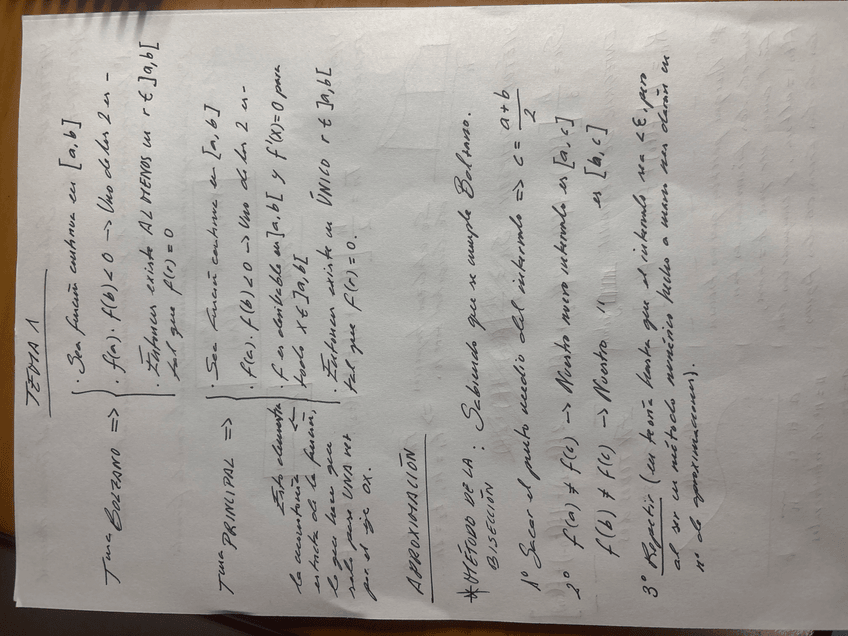 TEMA 1
Tma BOLZANO => { · Sea función continua en [a,b]
· f(a) · f(b) < 0 -> Uno de los 2 es -
· Entonces existe AL MENOS un r ∈ ]a,b[
tal que f(r) = 0
Tma PRINCIPAL => { · Sea función continua en [a,b]
· f(a) · f(b) < 0 -> Uno de los 2 es -
· f es derivable en ]a,b[ y f'(x) = 0 para
todo x ∈ ]a,b[
· Entonces existe un ÚNICO r ∈ ]a,b[
tal que f(r) = 0.
Esto demuestra <-
la monotonía
estricta de la función,
lo que hace que
solo pase UNA vez
por el eje OX.
APROXIMACIÓN
* MÉTODO DE LA
BISECCIÓN : Sabiendo que se cumple Bolzano.
1º Sacar el punto medio del intervalo => c = a+b/2
2º f(a) ≠ f(c) -> Nuestro nuevo intervalo es [a,c]
f(b) ≠ f(c) -> Nuestro " es [b,c]
3º Repetir (en teoría hasta que el intervalo sea < ε, pero
al ser un método numérico hecho a mano nos darán un
nº de aproximaciones).